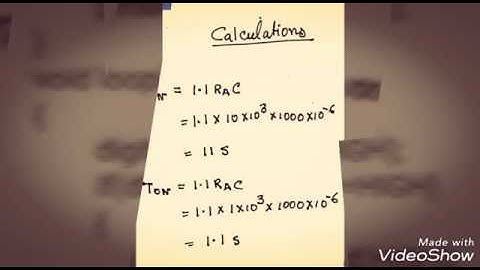 Calculations
= 1.1 RAC
= 1.1 × 10 × 10³ × 1000 × 10⁻⁶
= 11 S
TON = 1.1 RAC
= 1.1 × 1 × 10³ × 1000 × 10⁻⁶
= 1.1 S
Made with
VideoShow